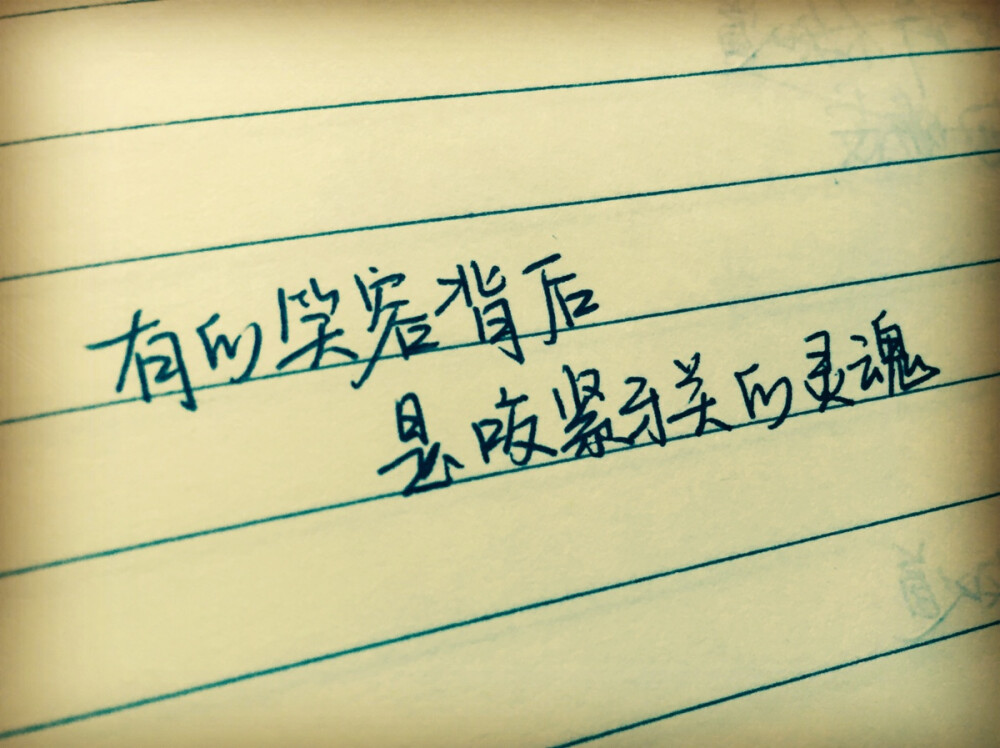 有的笑容背后
是咬紧牙关的灵魂